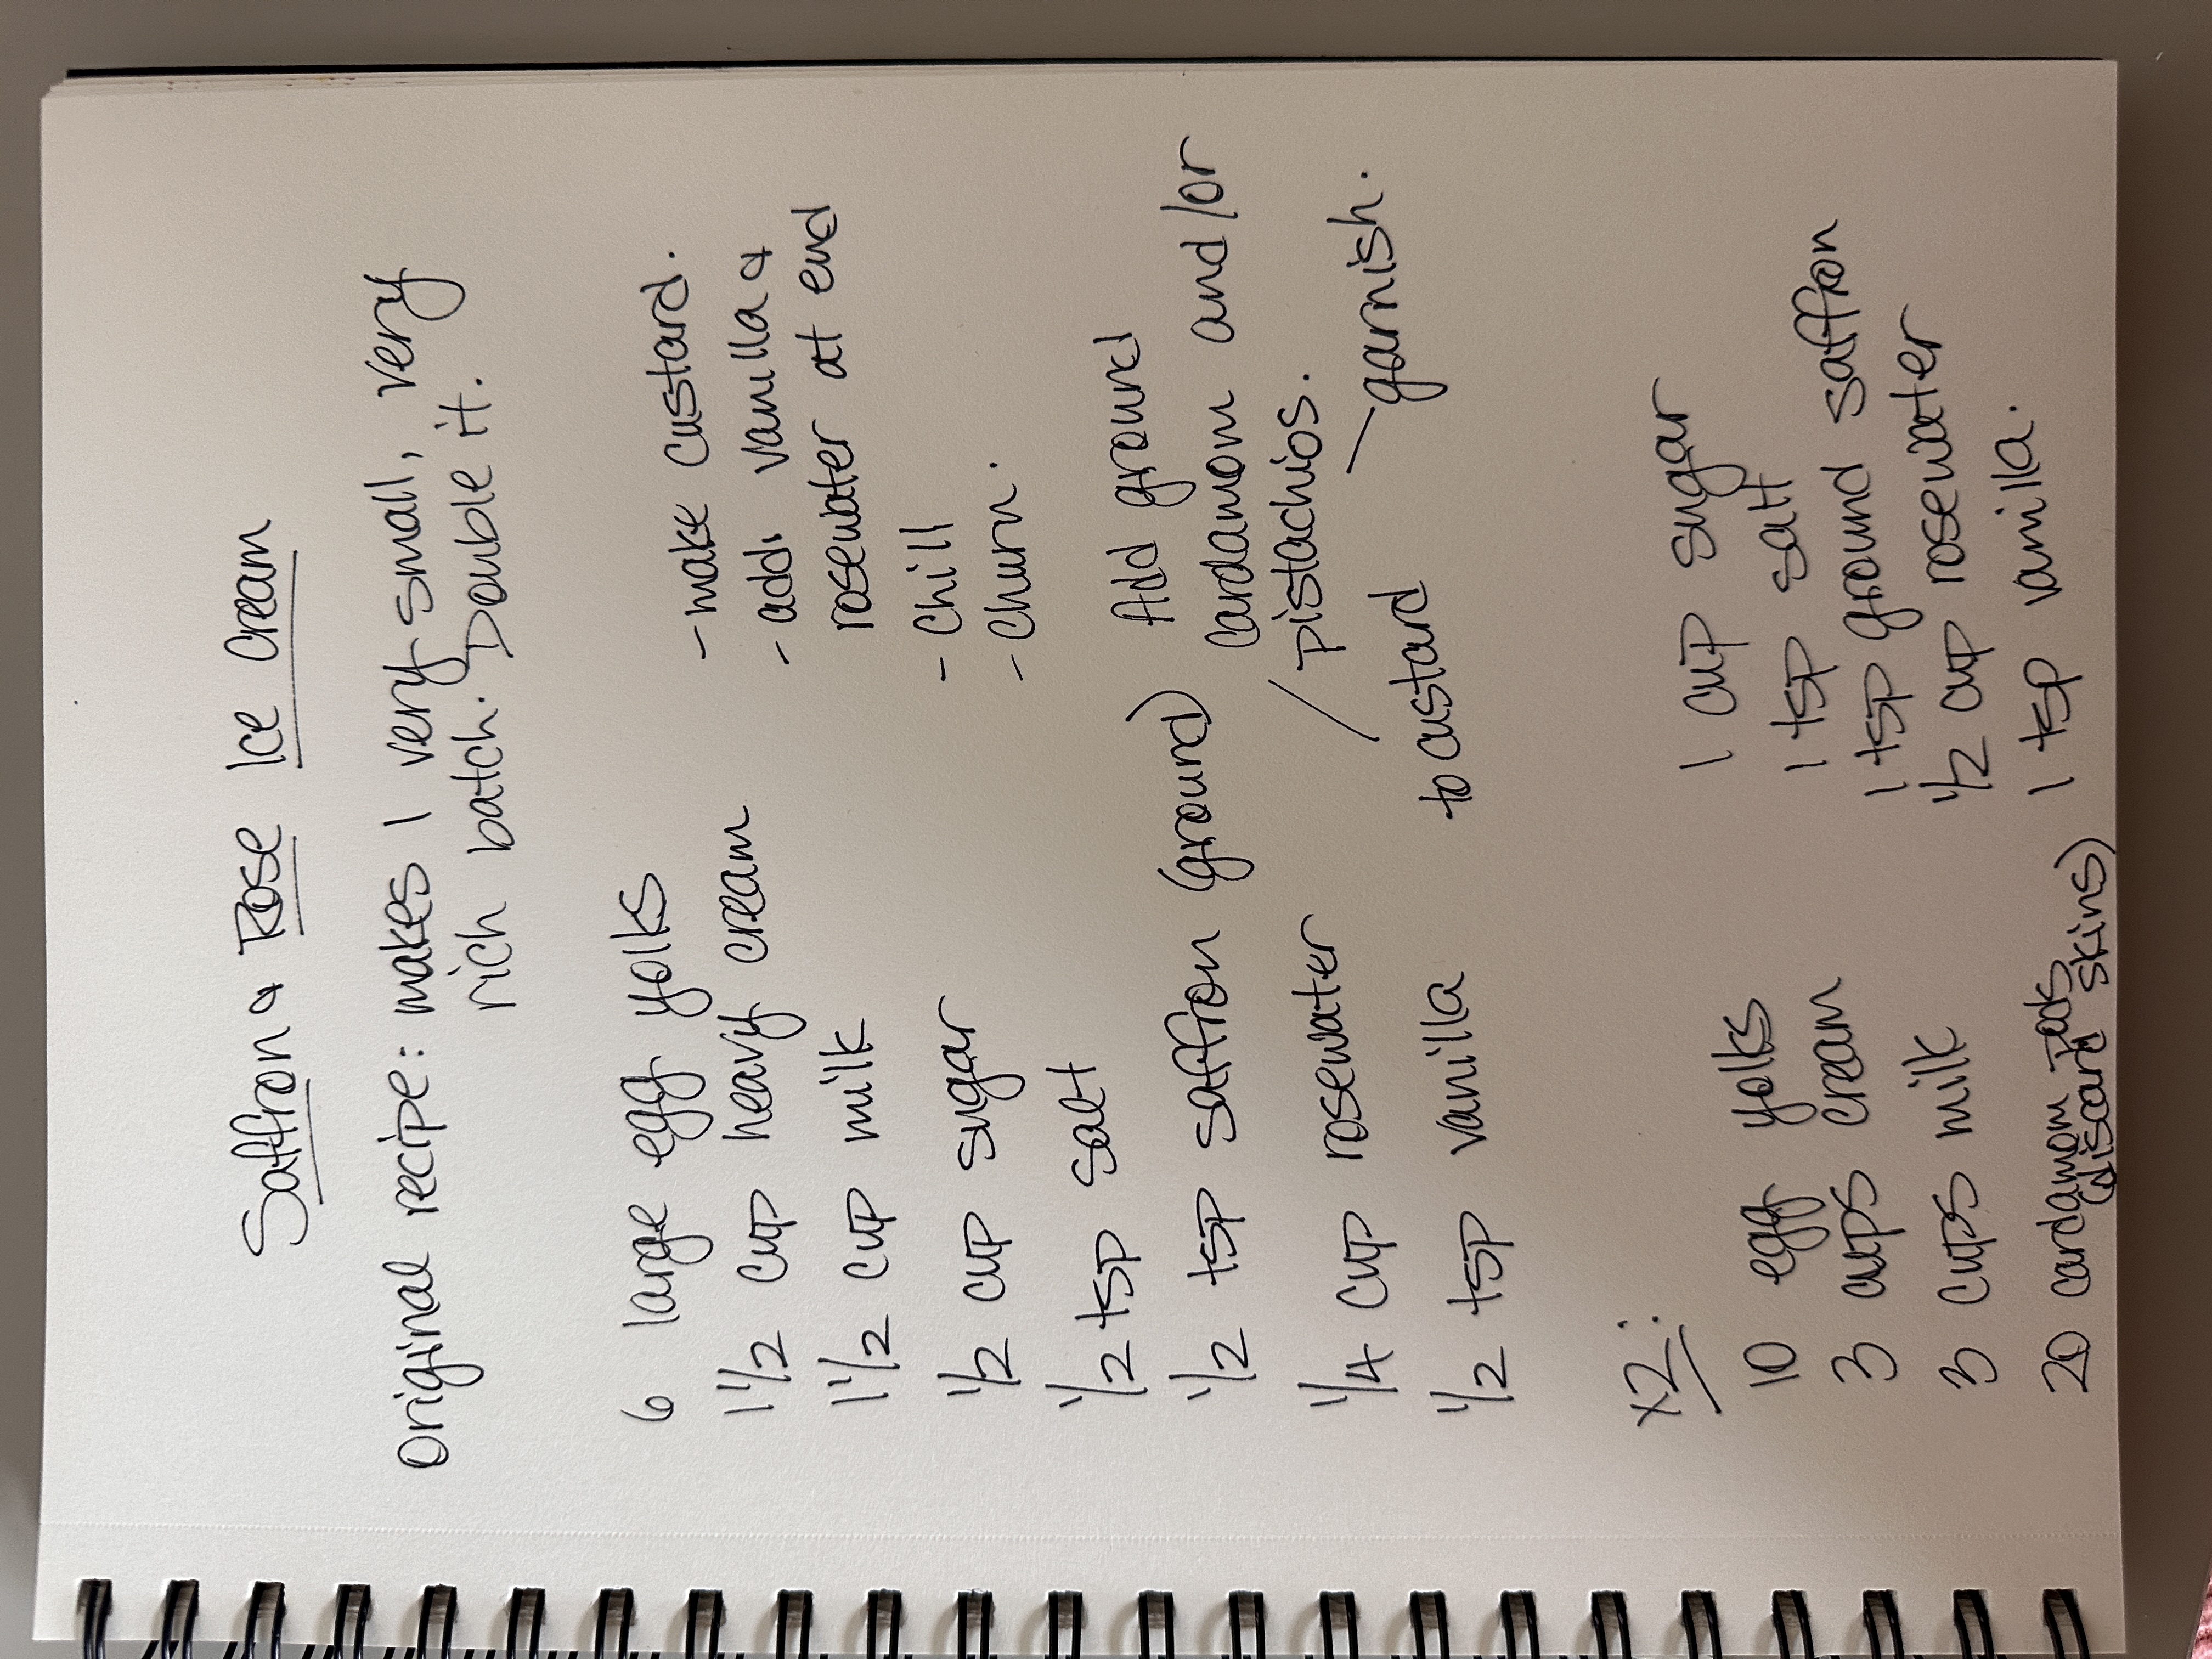 Saffron & Rose Ice Cream
Original recipe: makes 1 very small, very
rich batch. Double it.
6 large egg yolks
1 1/2 cup heavy cream
1 1/2 cup milk
1/2 cup sugar
1/2 tsp salt
1/2 tsp saffron (ground)
1/4 cup rosewater
1/2 tsp vanilla
- make custard.
- add vanilla &
rosewater at end
- Chill
- Churn.
Add ground
cardamom and/or
pistachios.
to custard
garnish.
x2:
10 egg yolks
3 cups cream
3 cups milk
20 cardamom pods
(discard skins)
1 cup sugar
1 tsp salt
1 tsp ground saffron
1/2 cup rosewater
1 tsp vanilla.